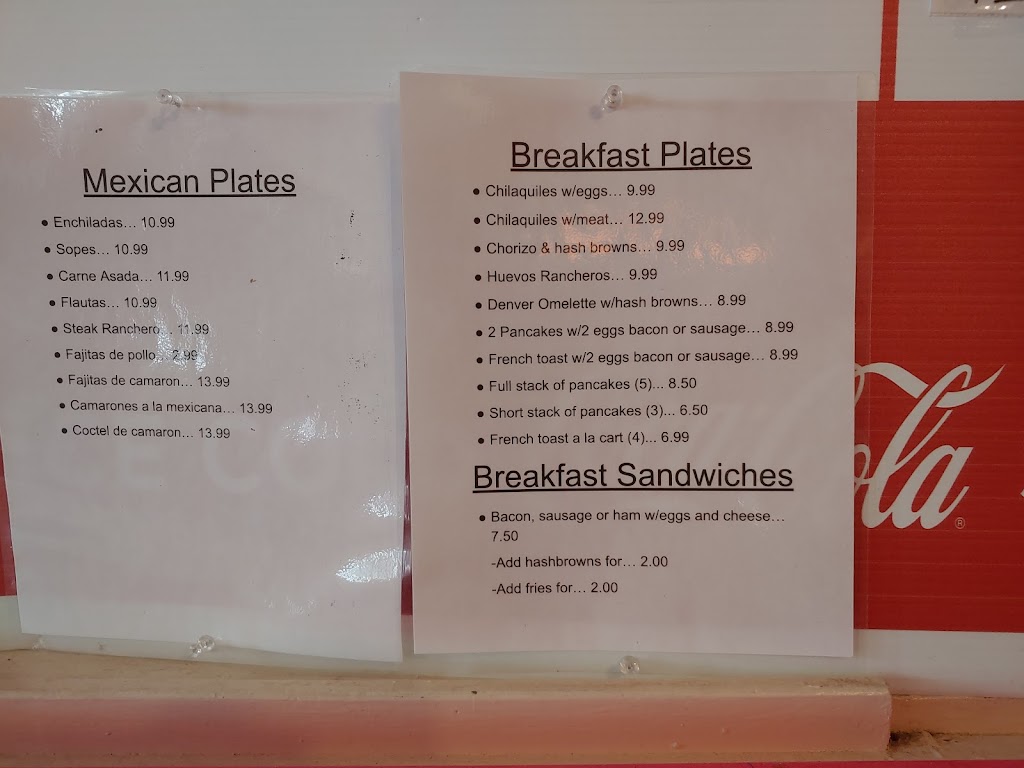 Mexican Plates
● Enchiladas... 10.99
● Sopes... 10.99
● Carne Asada... 11.99
● Flautas... 10.99
● Steak Ranchero... 11.99
● Fajitas de pollo... 2.99
● Fajitas de camaron... 13.99
● Camarones a la mexicana... 13.99
● Coctel de camaron... 13.99
Breakfast Plates
● Chilaquiles w/eggs... 9.99
● Chilaquiles w/meat... 12.99
● Chorizo & hash browns... 9.99
● Huevos Rancheros... 9.99
● Denver Omelette w/hash browns... 8.99
● 2 Pancakes w/2 eggs bacon or sausage... 8.99
● French toast w/2 eggs bacon or sausage... 8.99
● Full stack of pancakes (5)... 8.50
● Short stack of pancakes (3)... 6.50
● French toast a la cart (4)... 6.99
Breakfast Sandwiches
● Bacon, sausage or ham w/eggs and cheese...
7.50
-Add hashbrowns for... 2.00
-Add fries for... 2.00
ola®